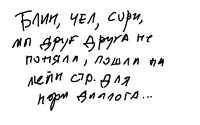 Блин, чел, сори,
мы друг друга не
поняли, пошли на
мейн стр. для
норм диалога...